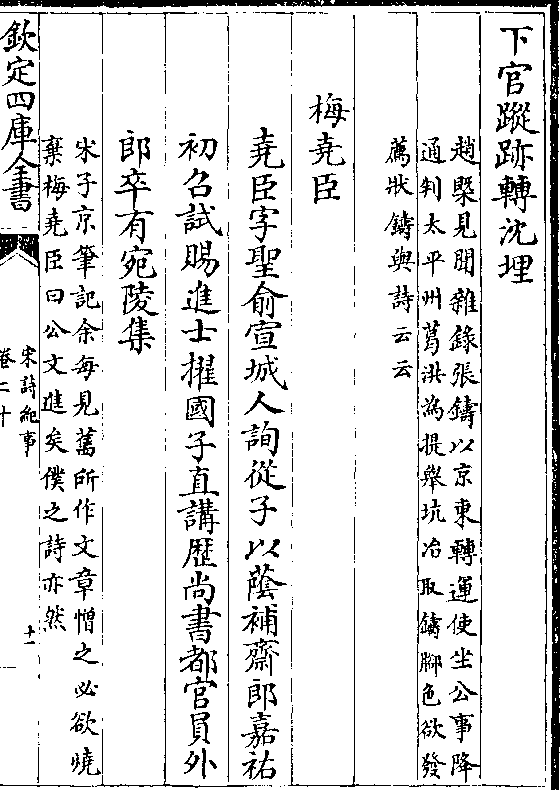 下官蹤跡轉沈埋
趙槩見聞雜錄張鑄以京東轉運使坐公事降
通判太平州葛洪為提舉坑冶取鑄腳色欲發
薦狀鑄與詩云云
梅堯臣
堯臣字聖俞宣城人詢從子以蔭補齋郎嘉祐
初召試賜進士擢國子直講歷尚書都官員外
郎卒有宛陵集
宋子京筆記余每見舊所作文章憎之必欲燒
棄梅堯臣曰公文進矣僕之詩亦然
欽定四庫全書
宋詩紀事
卷二十
十一